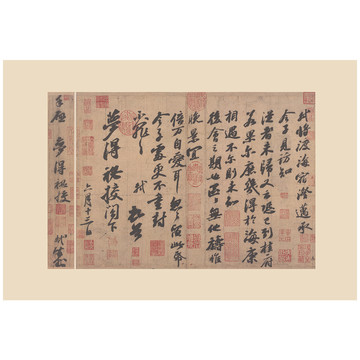 軾將渡海宿澄邁承
令子見訪知
從者未歸又云恐已到桂府
若果尔庶幾得於海康
相遇不尔則未知
後會之期也區區無他禱惟
晚景宜
倍万自愛耳匆匆留此帋
令子處更不重封
不罪不罪
軾頓首
夢得祕校閣下
六月十三日
手啓 夢得祕校 軾封